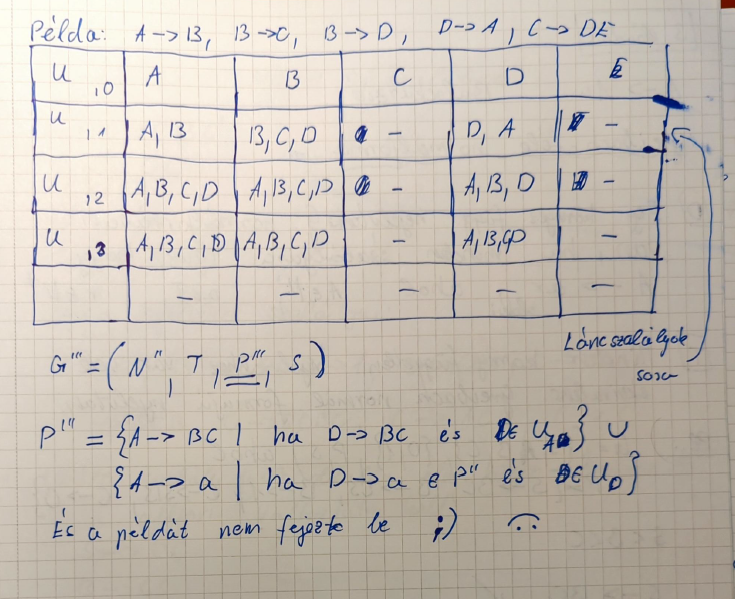 Példa: A->B, B->C, B->D, D->A, C->DE
U ,0 A B C D E
U ,1 A,B B,C,D - D,A -
U ,2 A,B,C,D A,B,C,D - A,B,D -
U ,3 A,B,C,D A,B,C,D - A,B,C,D -
- - - - -
Láncszabályok
sora
G''' = (N'', T, P''', S)
P''' = {A->BC | ha D->BC és D∈ U_A} ∪
{A->a | ha D->a ∈ P'' és D∈U_D}
És a példát nem fejezte be ;) :(